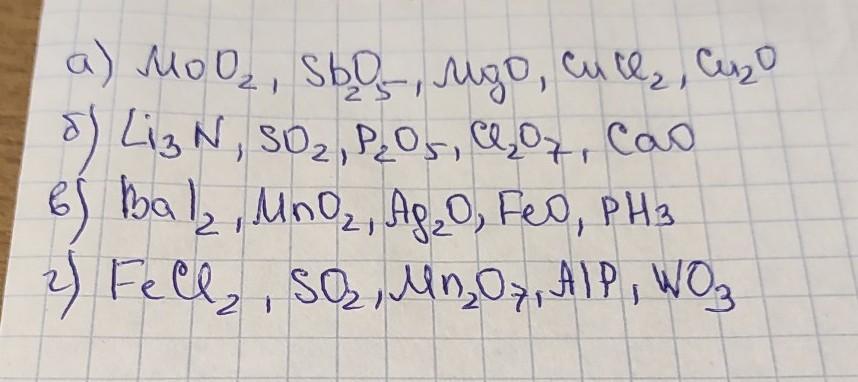 а) MoO₂, Sb₂O₅, MgO, CuCl₂, Cu₂O
б) Li₃N, SO₂, P₂O₅, Cl₂O₇, CaO
в) BaI₂, MnO₂, Ag₂O, FeO, PH₃
г) FeCl₂, SO₂, Mn₂O₇, AlP, WO₃